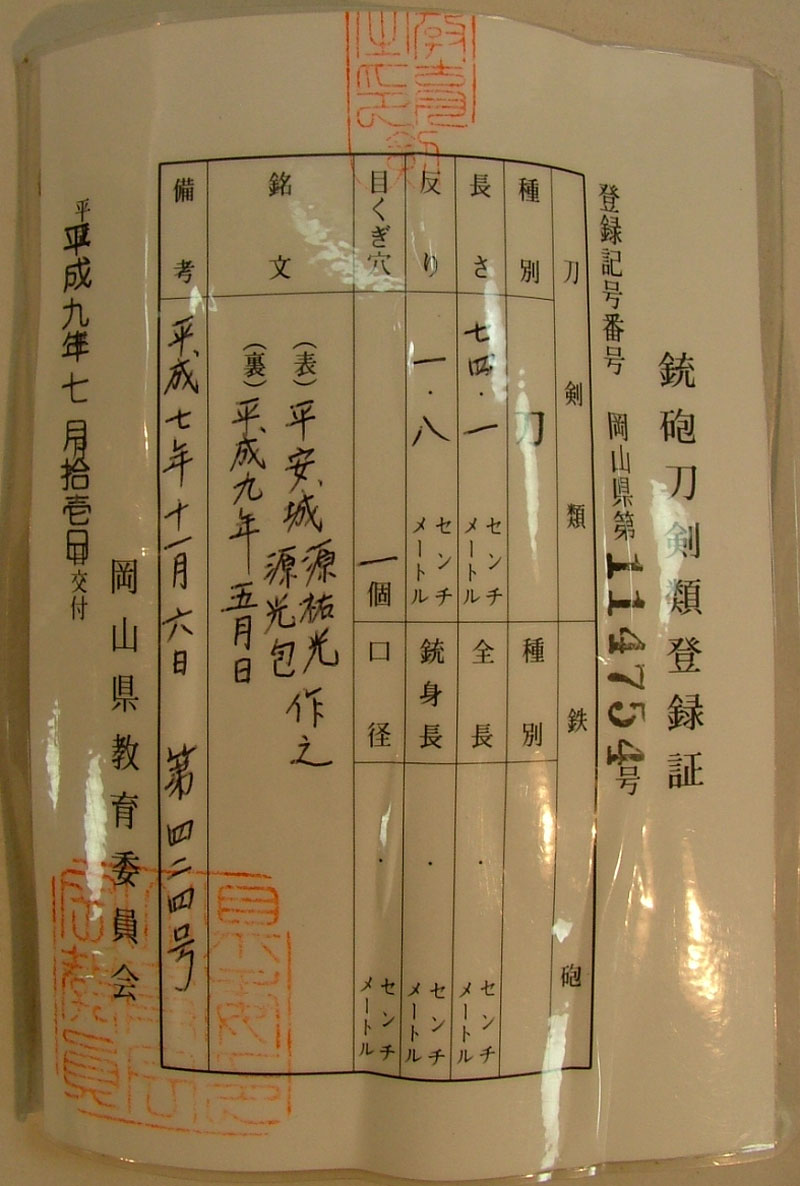 銃砲刀剣類登録証
登録記号番号 岡山県第114754号
刀剣類
鉄砲
種別
刀
種別
長さ
七四・一
センチメートル
全長
・
センチメートル
反り
一・八
センチメートル
銃身長
・
センチメートル
目くぎ穴
一個
口径
・
センチメートル
銘文
(表)平安城源祐光作之
源光包
(裏)平成九年五月日
備考
平成七年十一月六日 第四二四号
岡山県教育委員会
平成九年七月拾壱日交付